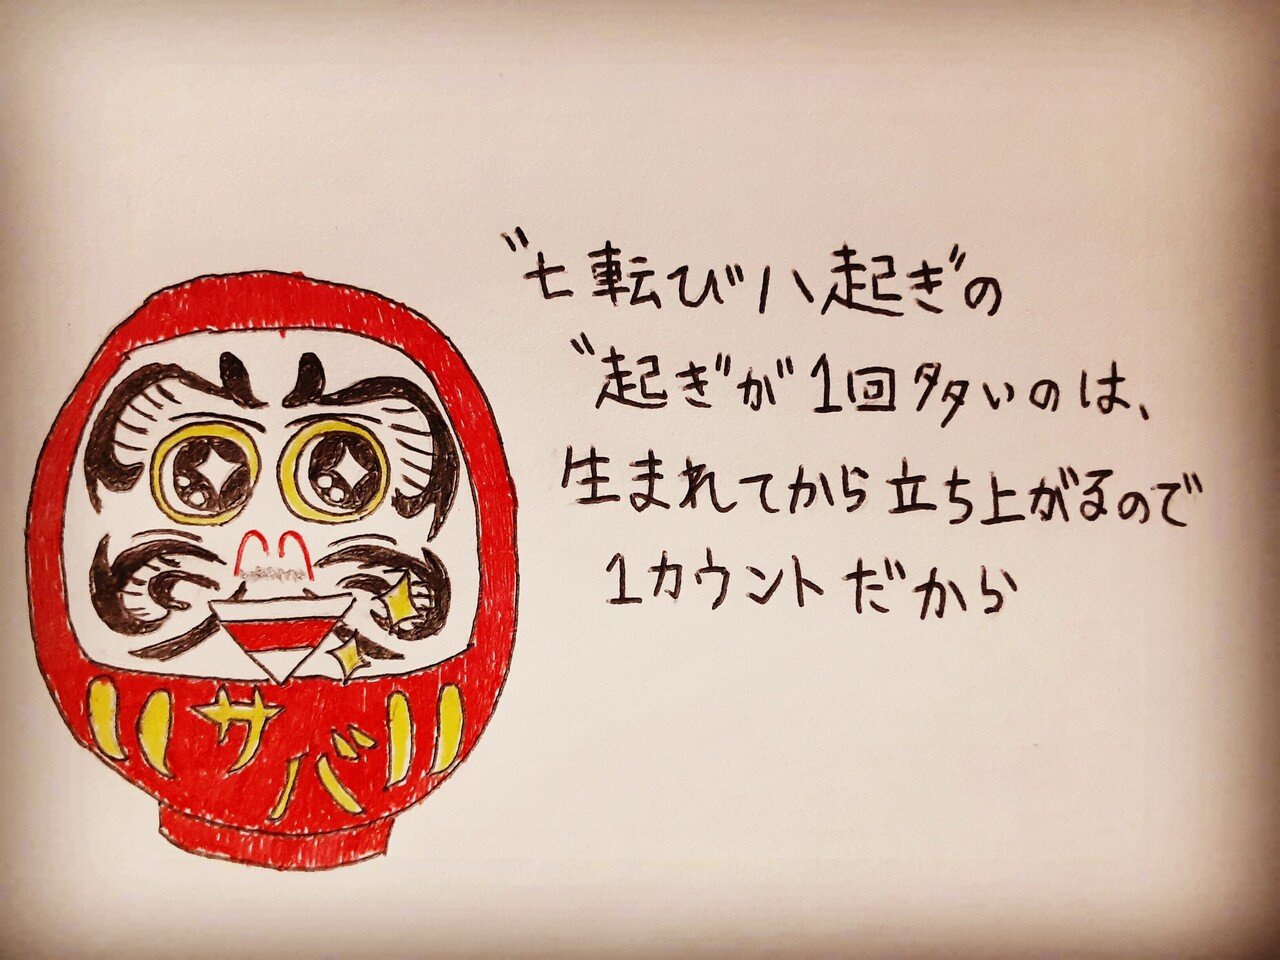 〝七転び八起き〞の
〝起き〞が1回多いのは、
生まれてから立ち上がるので
1カウントだから
サバ